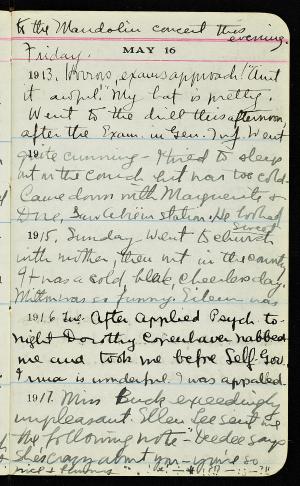 to the Mandolin concert this
evening.
Friday.
MAY 16
1913. Horrors, exams approach! "Aint
it awful." My hat is pretty.
Went to the drill this afternoon,
after the Exam. in Gen. Went
quite cunning - I tried to sleep
out on the couch but was too cold.
Came down with Marguerite &
Dore, station. He looked
sweet
1915, Sunday Went to church
with mother, then out in the country
It was a cold, bleak, cheerless day.
was so funny. Eileen was
1916. Tue. After Applied Psych to-
night Dorothy nabbed
me and took me before Self-Gov.
Irma is wonderful. I was appalled.
1917. Miss Buck exceedingly
unpleasant. Ellen Lee sent me
the following note - "Leedee says
she's crazy about you - you're so
nice &